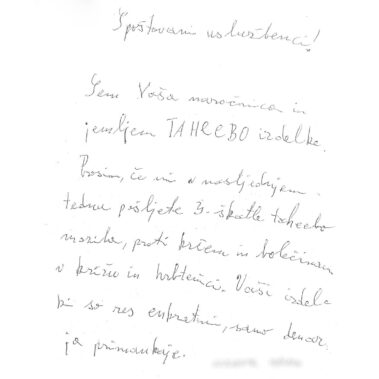 Spoštovani uslužbenci!
Sem Vaša naročnica in
jemljem TAHEEBO izdelke.
Prosim, če mi v nasljednjem
tednu pošljete 3 škatle taheebo
mazila, proti krčem in bolečinam
v križu in hrbtenici. Vaši izdel-
ki so res enkratni, samo denar-
ja primankuje.